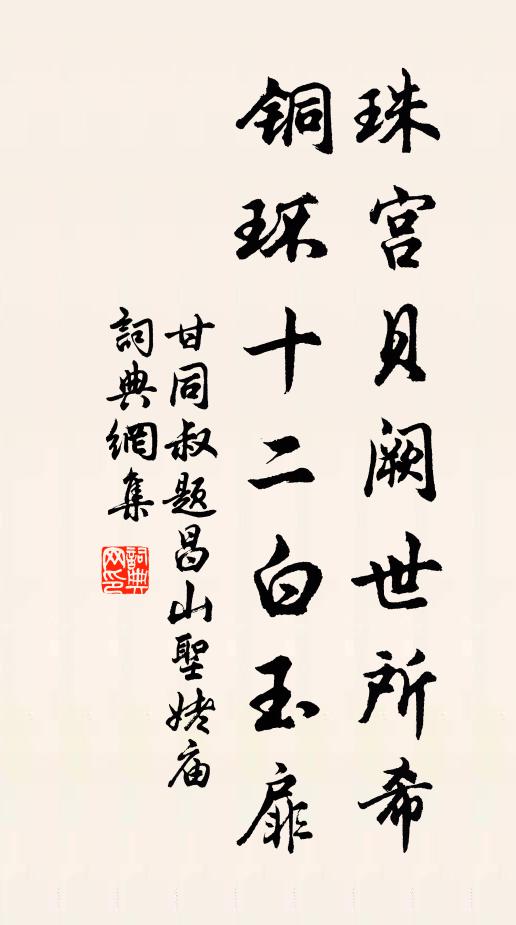 珠宫貝阙世所希
铜环十二白玉扉
甘同叔题昌山聖姥庙
詞典網集
詞典网印